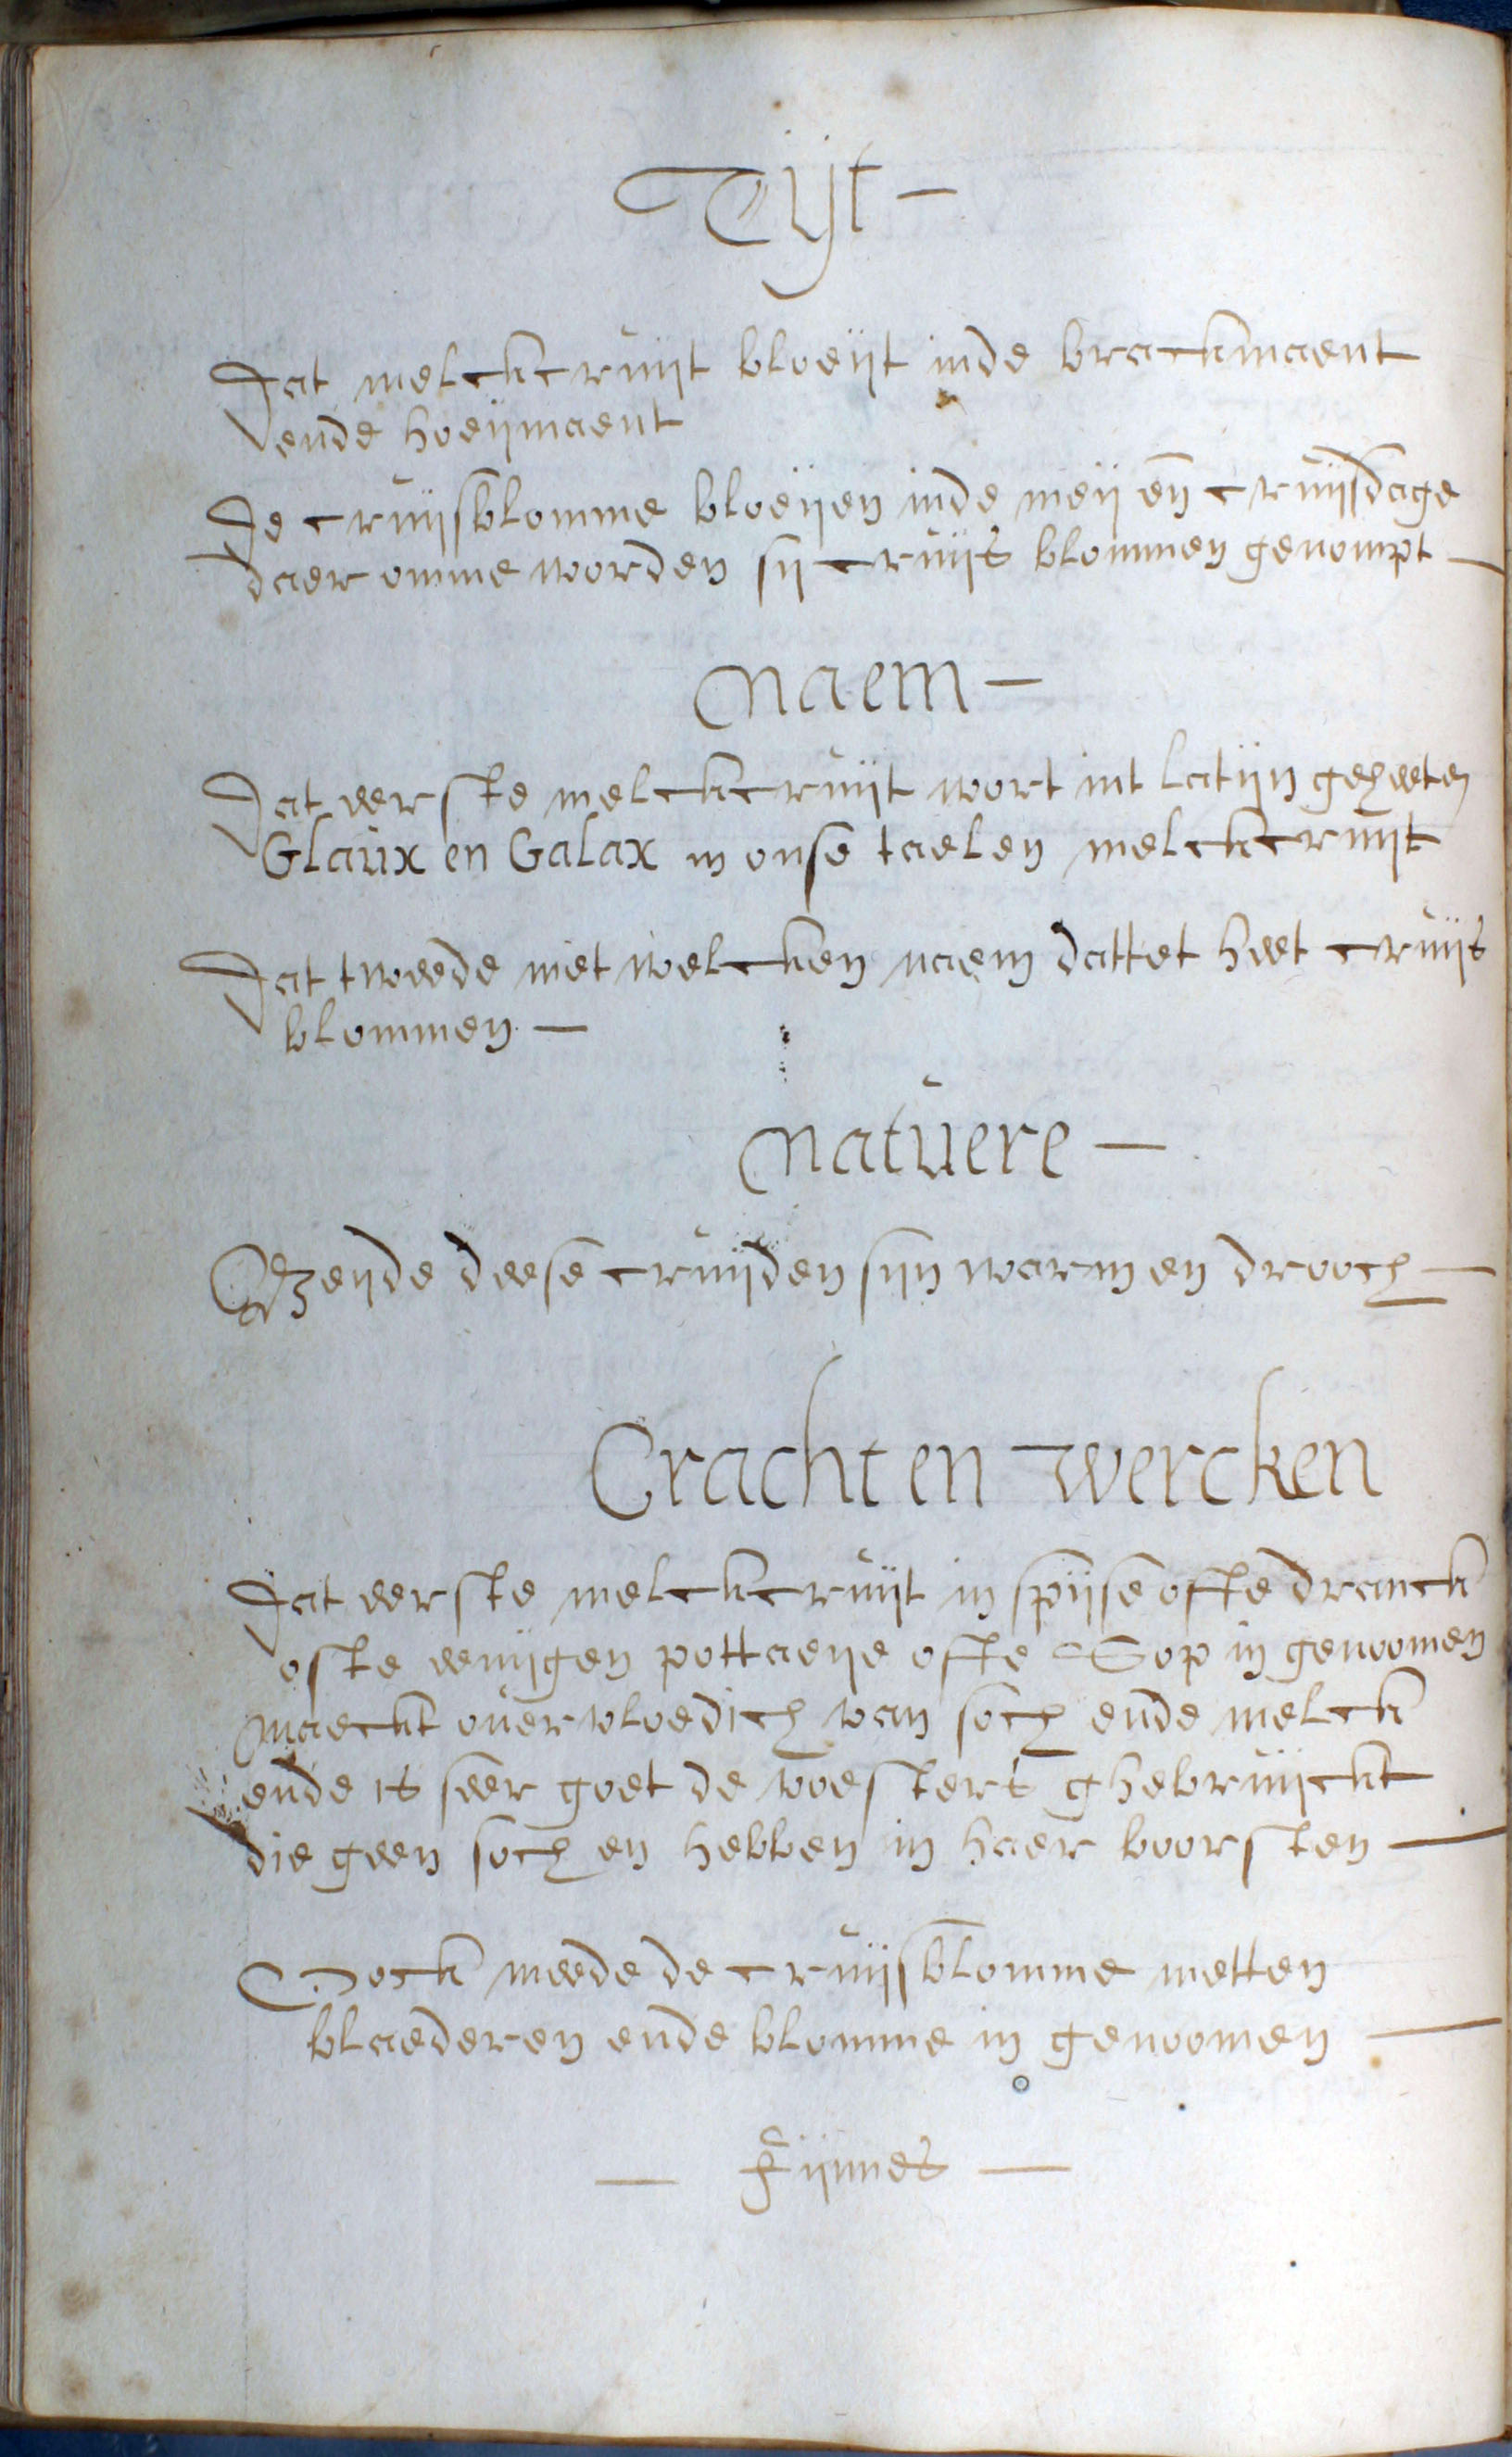 Tijt –
Dat melckcruijt bloeijt inde brackmaent
ende hoeijmaent
De cruijsblomme bloeijen inde meij en cruijsdage
daer omme worden sij cruijs blommen genompt –
Naem –
Dat eerste melckcruijt wort int latijn geheeten
Glaux en Galax in onse taelen melckcruijt
Dat tweede met welcken naem dattet heet cruijs
blommen –
Natuere –
Beijde deese cruijden sijn warm en drooch –
Cracht en wercken
Dat eerste melckcruijt in spijse ofte dranck
ofte eenijgen pottaeije ofte Sop in genoomen
maeckt overvloedich van soch ende melck
ende is seer goet de voesters ghebruijckt
die geen soch en hebben in haer boorsten –
Oock meede de cruijsblomme metten
blaederen ende blomme in genoomen –
– Fijnnes –